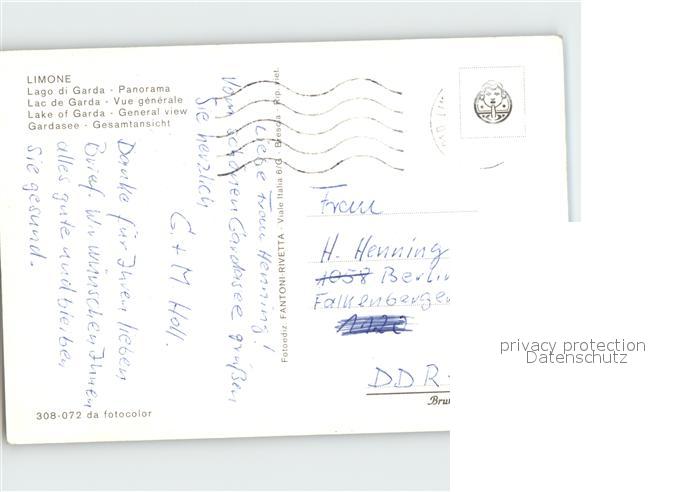 LIMONE
Lago di Garda - Panorama
Lac de Garda - Vue générale
Lake of Garda - General view
Gardasee - Gesamtansicht
Liebe Frau Henning!
Vom schönen Gardasee grüßen
Sie herzlich
G. + M Holl.
Danke für Ihren lieben
Brief. Wir wünschen Ihnen
alles gute und bleiben
Sie gesund.
Fotoediz. FANTONI-RIVETTA - Viale Italia 6/G - Brescia - Rip. viet.
Frau
H. Henning
1058 Berlin
Falkenberger
1120
DDR-
Bru
308-072 da fotocolor
privacy protection
Datenschutz